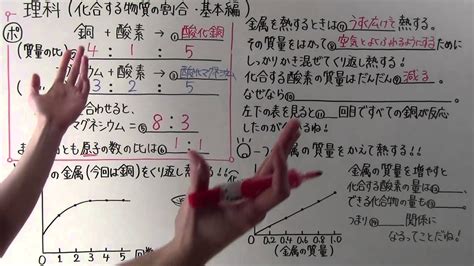 理科(化合する物質の割合・基本編)
ポ
銅 + 酸素 → 酸化銅
(質量の比) 4 : 1 : 5
ウム + 酸素 → 酸化マグネシウム
3 : 2 : 5
合わせると、
マグネシウム = 8 : 3
ま とも原子の数の比は 1 : 1
金属を熱するときは うすく広げて 熱する。
その質量をはかって、空気とよくふれるようにするために
しっかりかき混ぜてくり返し熱する!
化合する酸素の質量はだんだん 減る。
なぜなら
左下の表を見ると 回目ですべての銅が反応
したのがわかるね!
金属(今回は銅)をくり返し熱する!
0 1 2 3 4 5 回数
の質量をかえて熱する!!
0 0.2 0.4 0.6 0.8 1.0
金属の質量を増やすと
化合する酸素の量は
できる化合物の量も
つまり 関係に
なるってことだね!